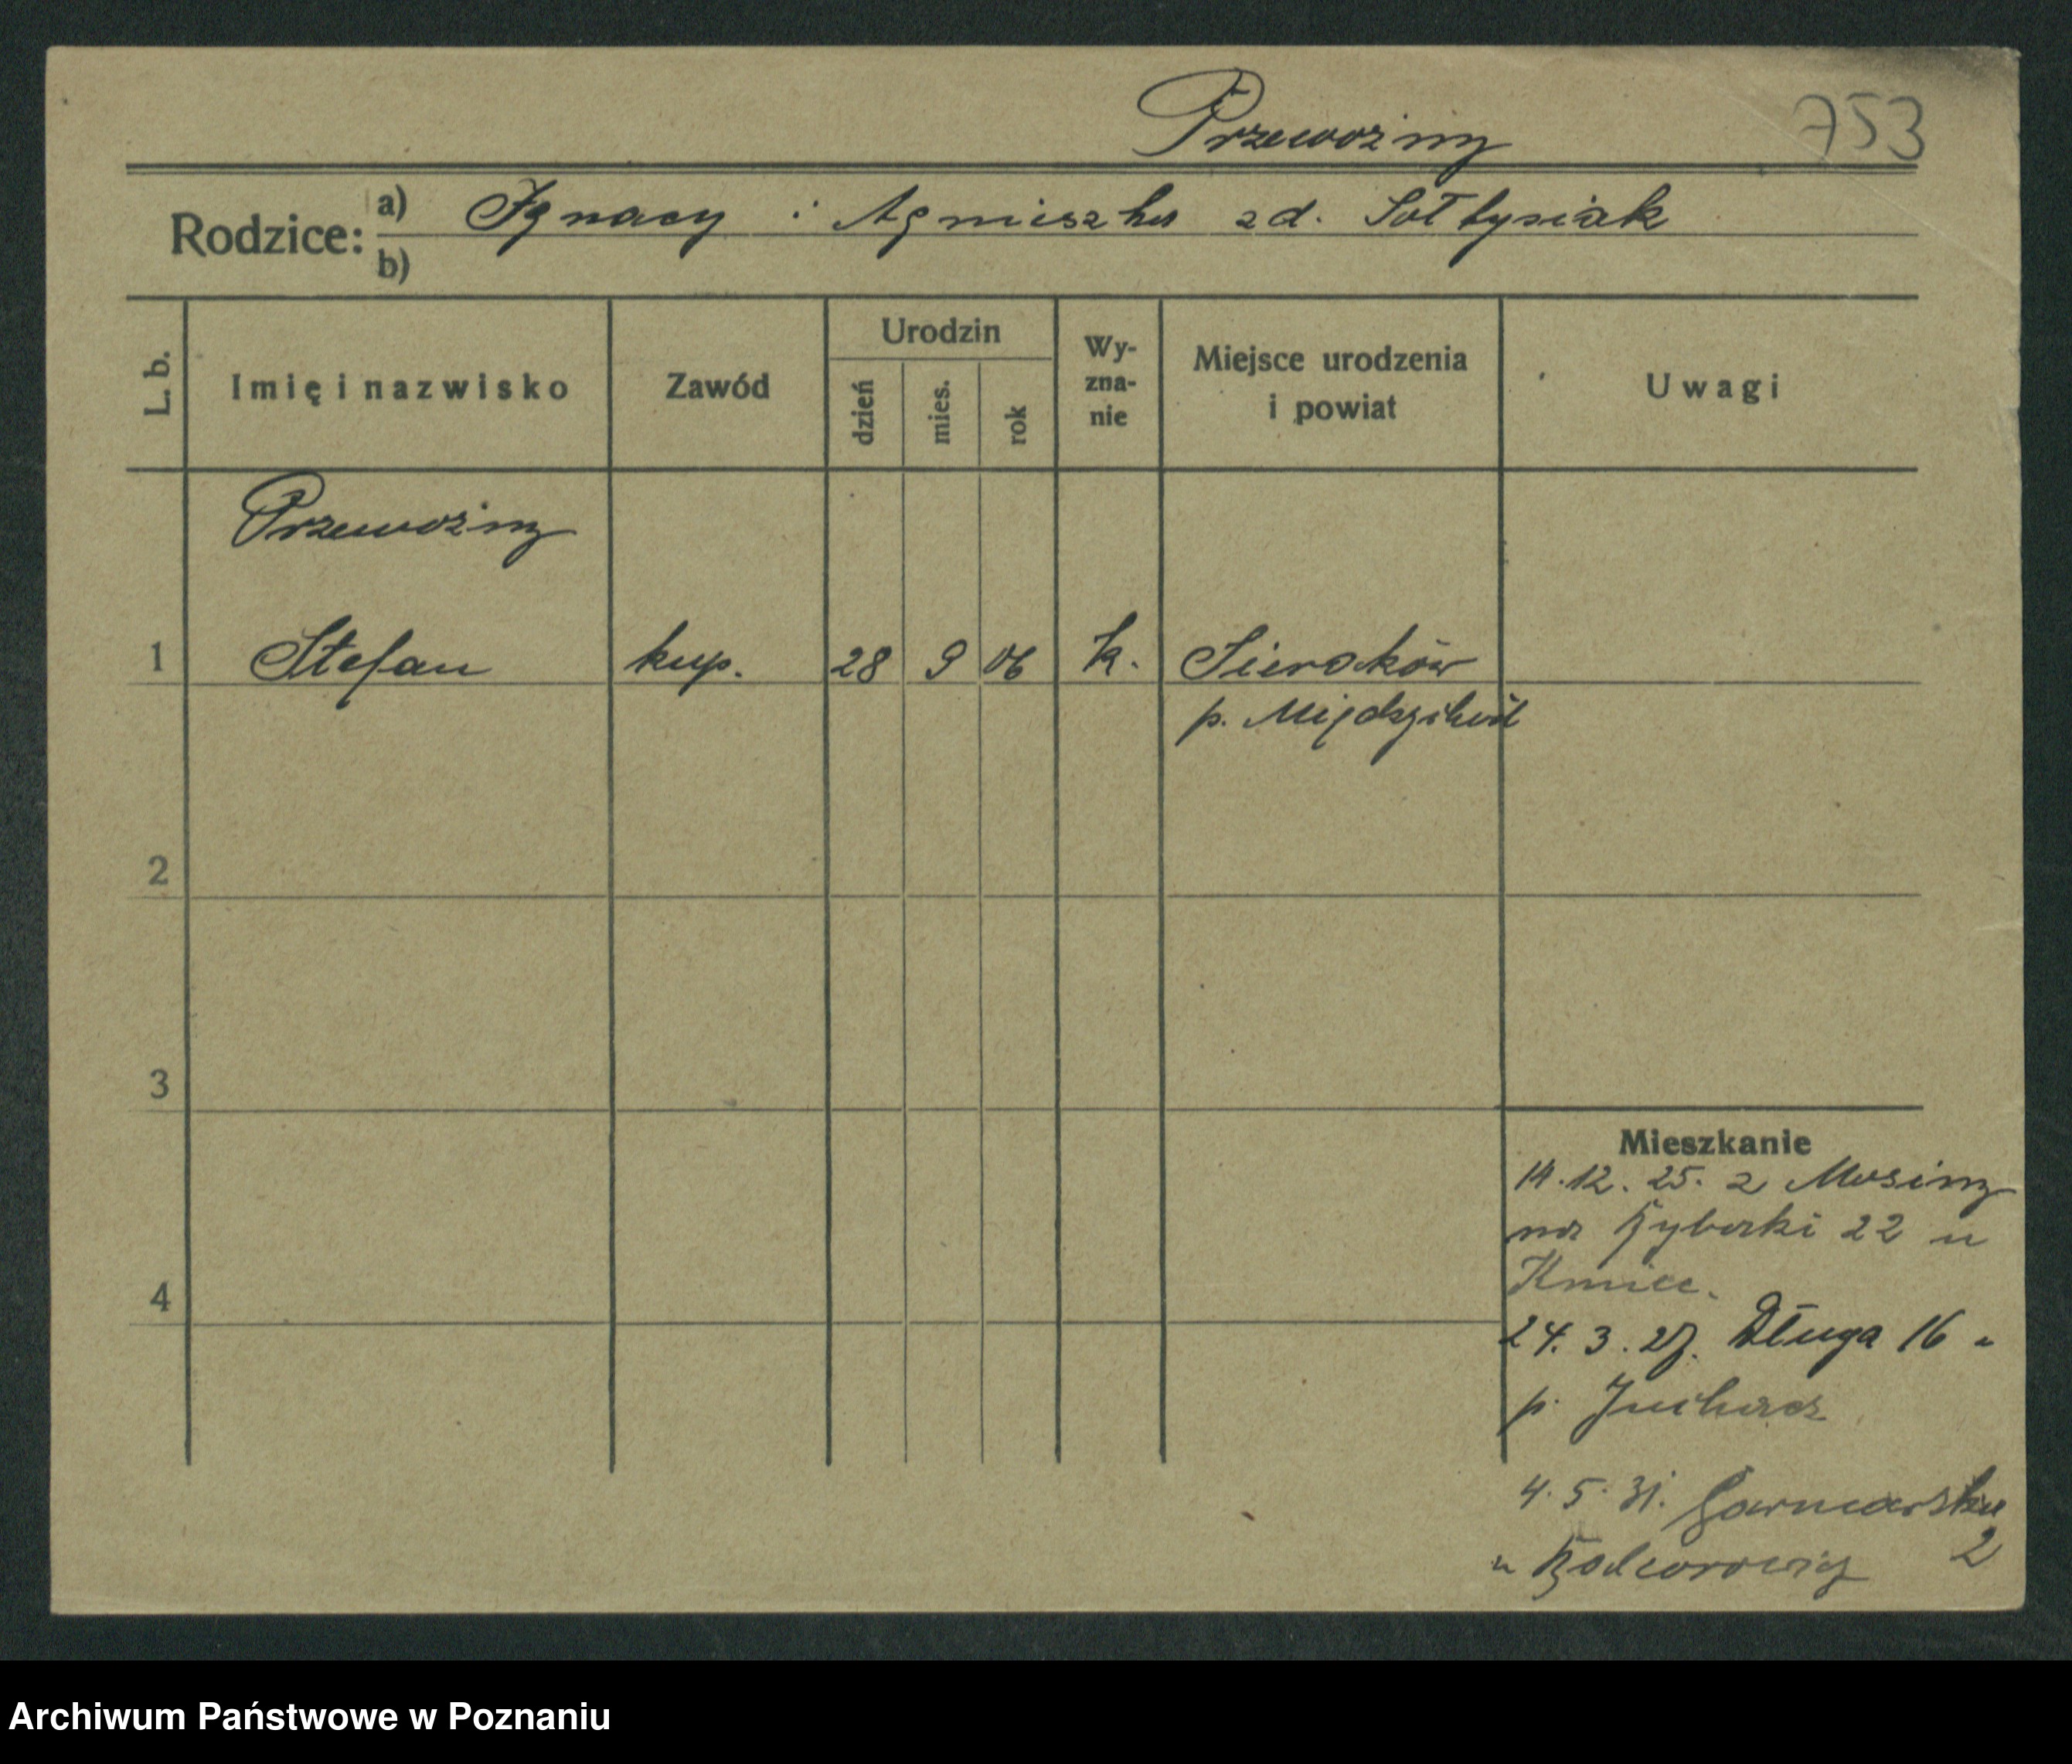 Przewoźny 753
Rodzice: a) Ignacy i Agnieszka zd. Sołtysiak
b)
L. b. Imię i nazwisko Zawód Urodzin dzień mies. rok Wy-zna-nie Miejsce urodzenia i powiat Uwagi
Przewoźny
1 Stefan kup. 28 9 06 k. Sieraków
p. Międzychód
2
3
Mieszkanie
14.12.25. z Mosiny
na Rybaki 22 u
4 Kmiec.
24.3.27. Długa 16 u
p. Juchacz
4.5.31. Garncarska
2
u
Archiwum Państwowe w Poznaniu